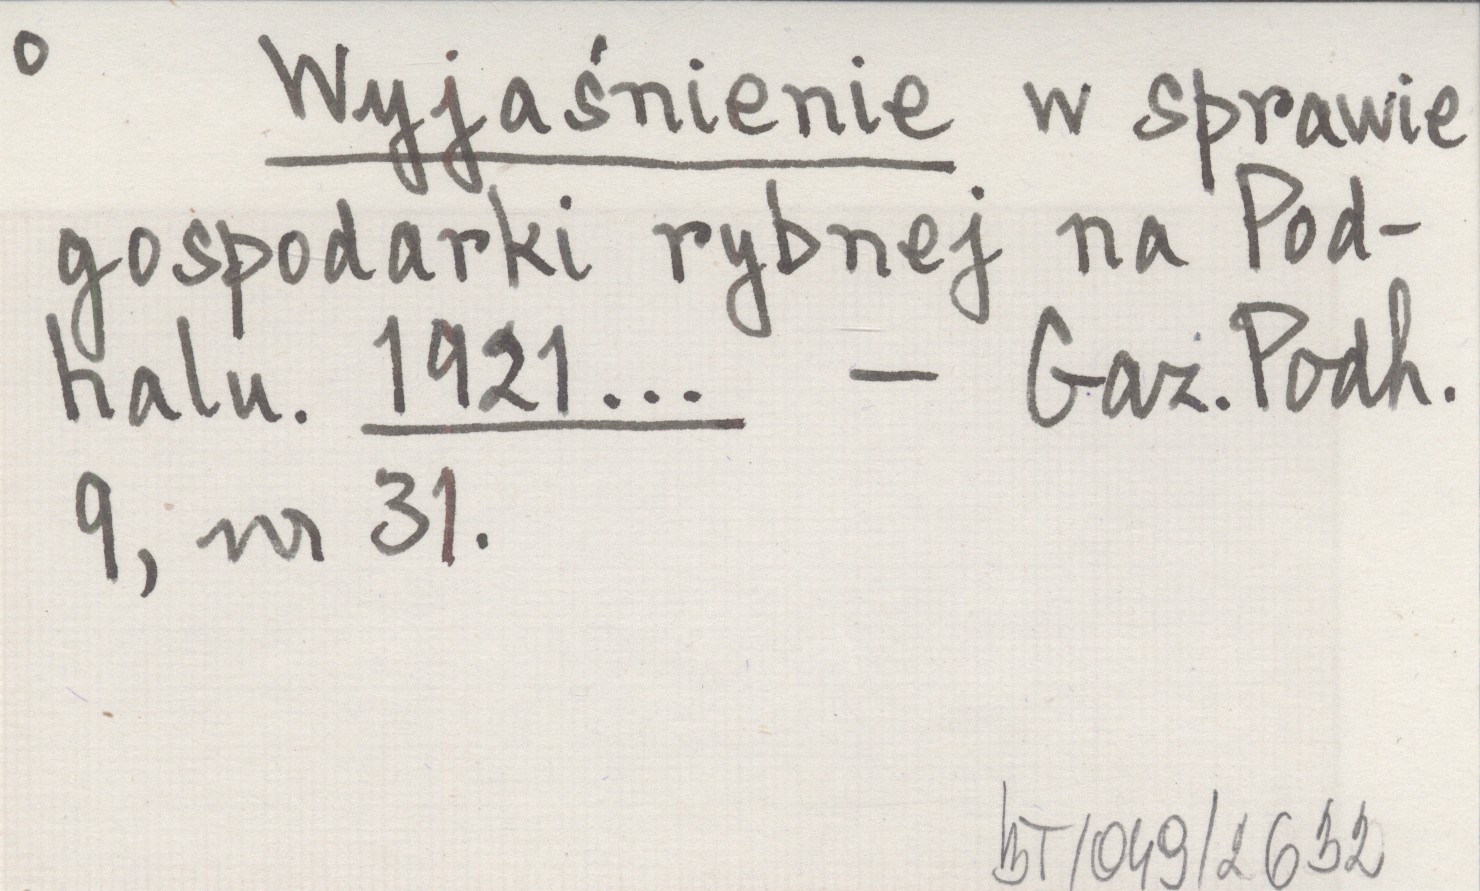 o Wyjaśnienie w sprawie
gospodarki rybnej na Pod-
halu. 1921... — Gaz. Podh.
9, nr 31.
BT/049/2632